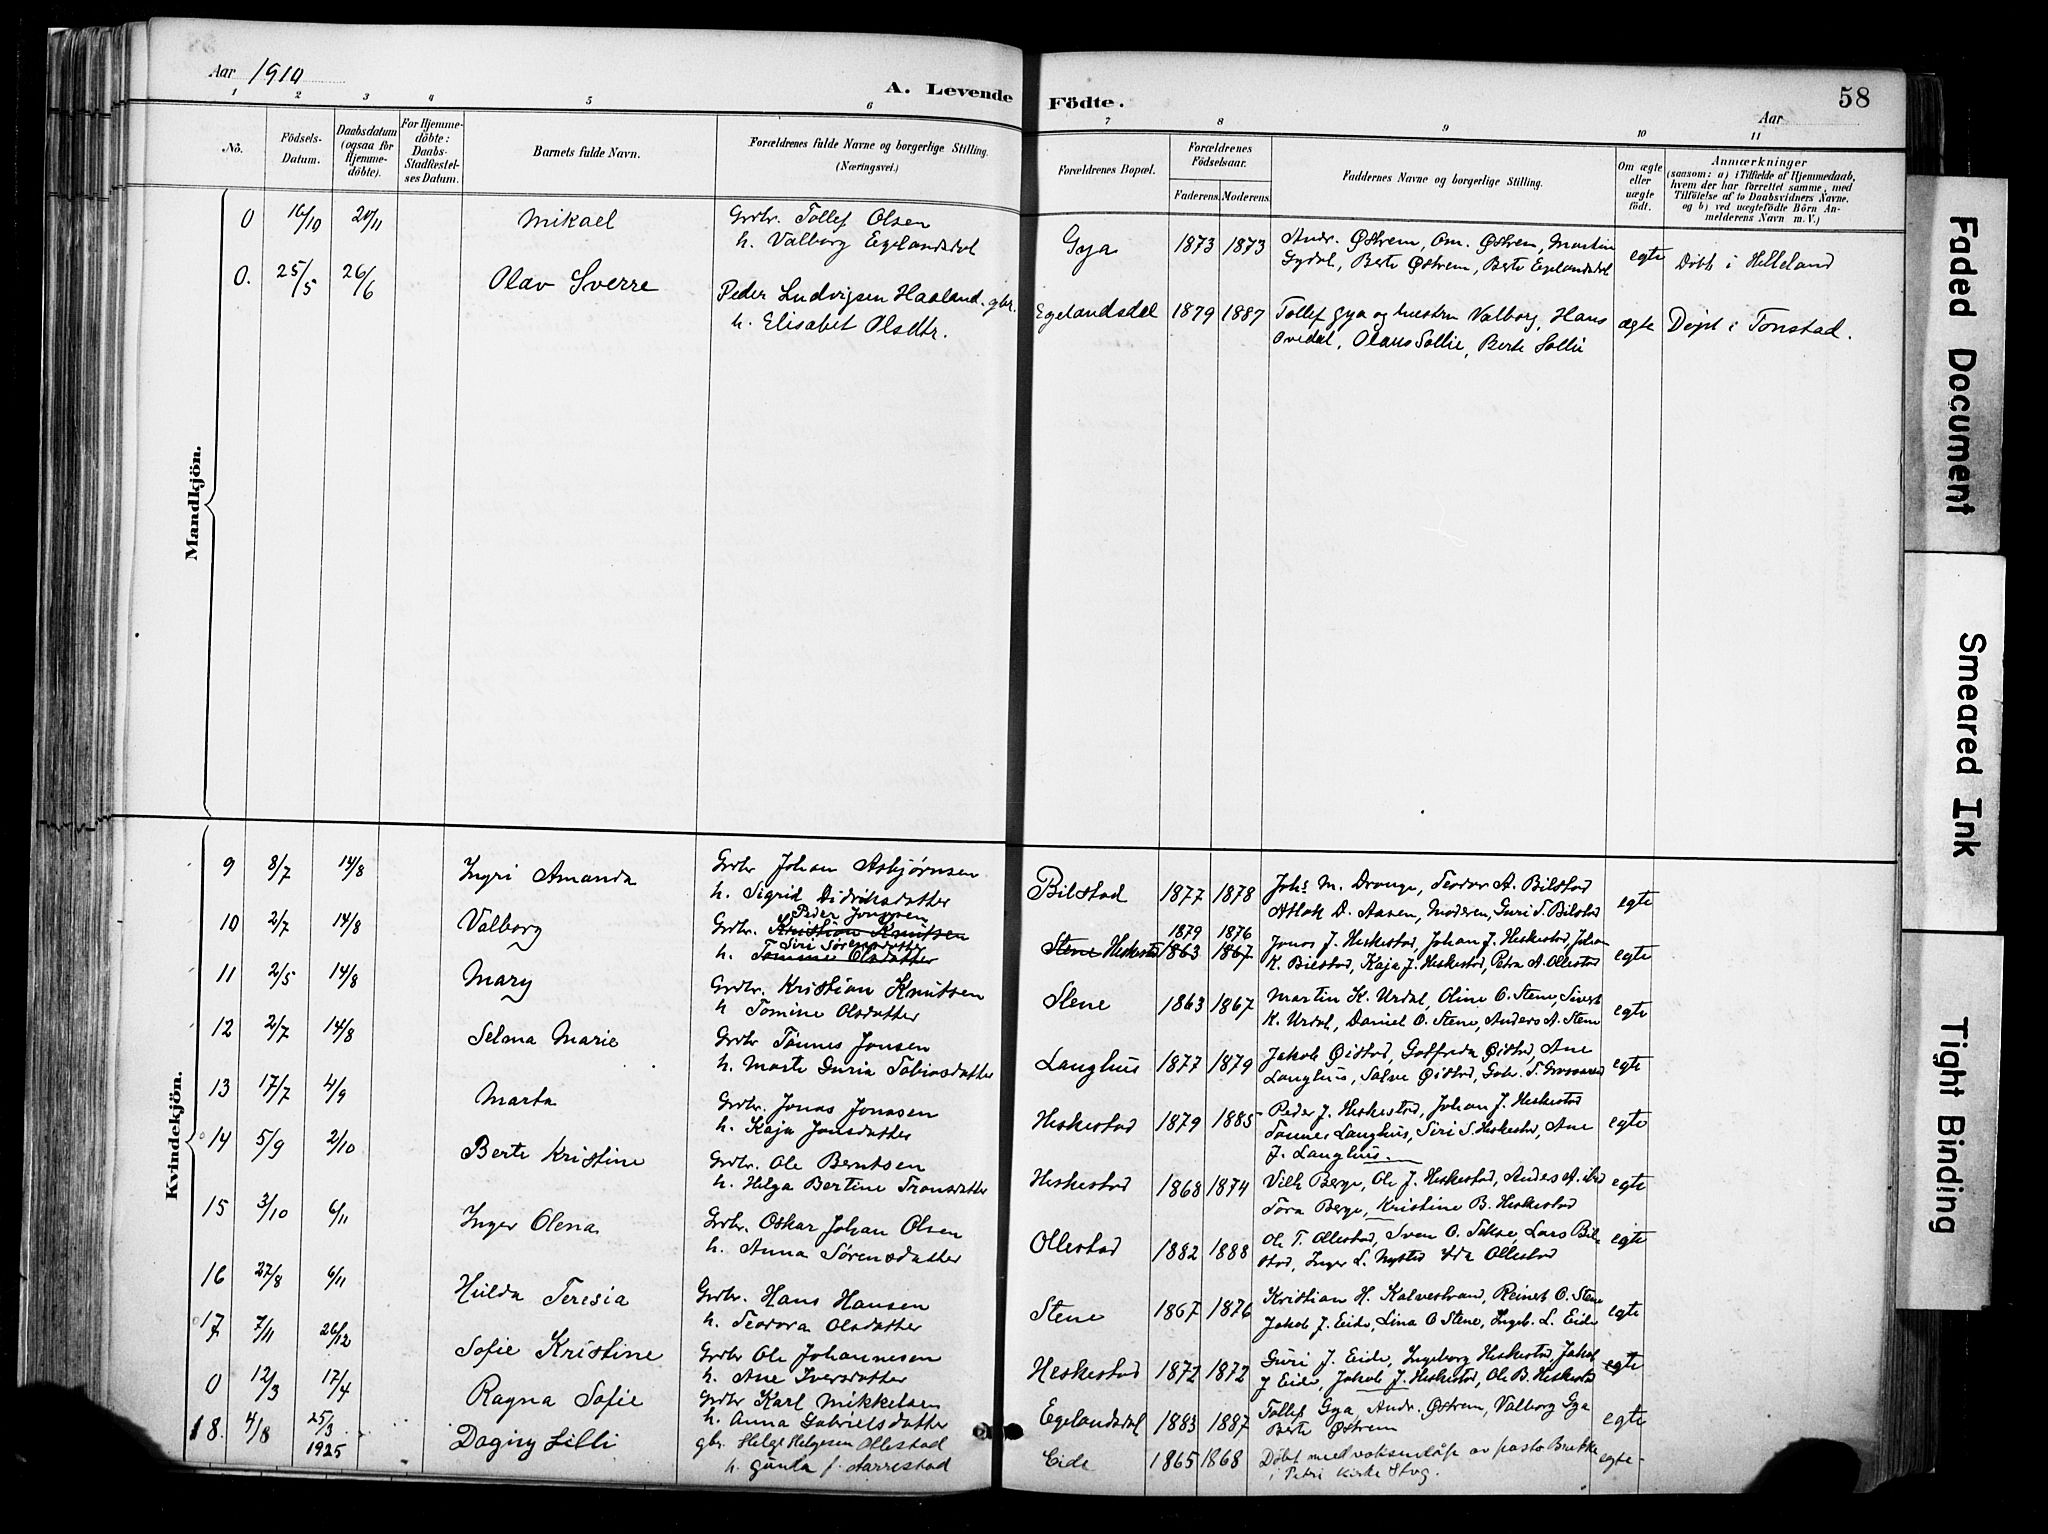 Aar 1910
A. Levende Födte.
58
Aar
1 2 3 4 5 6 7 8 9 10 11
Nô.
Födsels-Datum.
Daabsdatum (ogsaa for Hjemme-döbte).
For Hjemme-döbte: Daabs-Stadfæstel-ses Datum.
Barnets fulde Navn.
Forældrenes fulde Navne og borgerlige Stilling. (Næringsvei.)
Forældrenes Bopæl.
Forældrenes Födselsaar.
Faderens. Moderens.
Faddernes Navne og borgerlige Stilling.
Om ægte eller uægte födt.
Anmærkninger (saasom: a) i Tilfælde af Hjemmedaab, hvem der har forrettet samme, med Tilföielse af to Daabsvidners Navne. og b) ved uægtefödte Börn An-melderens Navn m. V.)
Mandkjön.
0 16/10 20/11 Mikael Grdbr. Tollef Olsen
h. Valborg Egelandsdal
Gya 1873 1873 Andr. Østrem, Om. Østrem, Martin
Gydal, Berte Østrem, Berte Egelandsdal
egte Döbt i Helleland
0. 25/5 26/6 Olav Sverre Peder Ludvigsen Haaland. gbr.
h. Elisabet Olsdtr.
Egelandsdal 1879 1887 Tollef Gya og hustru Valborg, Hans
Ovedal, Olaus Sollie, Berte Sollie
ægte Døpt i Tonstad.
Kvindekjön.
9 8/7 14/8 Ingri Amanda Grdbr Johan Asbjørnsen
h. Sigrid Didriksdatter
Bilstad 1877 1878 Johs M. Drange, Teodor A. Bilstad
Atlak D. Aasen, Moderen, Guri S. Bilstad
egte
10 2/7 14/8 Valborg Peder Jonassen
Grdbr. Kristian Knutsen
Siri Sørensdatter
h. Tomine Olsdatter
Stene Heskestad 1879 1876
1863 1867
Jonas J. Heskestad, Johan J. Heskestad, Johan
K. Bilstad, Kaja J. Heskestad, Petra A. Ollestad
egte
11 2/5 14/8 Mary Grdbr. Kristian Knutsen
h Tomine Olsdatter
Stene 1863 1867 Martin K. Urdal, Oline O. Stene, Sivert
K. Urdal, Daniel O. Stene, Anders A. Stene
egte
12 2/7 14/8 Selma Marie Grdbr Tønnes Jonsen
h. Marte Guria Tobiasdatter
Langhus 1877 1879 Jakob Øistad, Gotfreda Øistad, Ane
Langhus, Salve Øistad, Gabr. S.
egte
13 17/7 4/9 Marta Grdbr. Jonas Jonasen
h. Kaja Jonsdatter
Heskestad 1879 1885 Peder J. Heskestad, Johan J. Heskestad
Tønnes Langhus, Siri S. Heskestad, Ane
J. Langhus.
egte
14 5/9 2/10 Berte Kristine Grdbr. Ole Berntsen
h. Helga Bertine Tronsdatter
Heskestad 1868 1874 Vilh Berge, Ole J. Heskestad, Anders A. ibid
Tora Berge, Kristine B. Heskestad
egte
15 3/10 6/11 Inger Olena Grdbr. Oskar Johan Olsen
h. Anna Sørensdatter
Ollestad 1882 1888 Ole T. Ollestad, Sven O. Tekse, Lars Bil-
stad, Inger L. Nysted Ida Ollestad
egte
16 27/8 6/11 Hulda Teresia Grdbr. Hans Hansen
h. Teodora Olsdatter
Stene 1867 1876 Kristian H. Kalvestrand, Reinert O. Stene
Jakob J. Eide, Lina O Stene, Ingeb. L. Eide
egte
17 7/11 26/12 Sofie Kristine Grdbr Ole Johannesen
h. Ane Iversdatter
Heskestad 1872 1872 Guri J. Eide, Ingeborg Heskestad, Jakob
J Eide, Jakob J. Heskestad, Ole B. Heskestad
egte
0 12/3 17/4 Ragna Sofie Grdbr Karl Mikkelsen
h. Anna Gabrielsdatter
Egelandsdal 1883 1887 Tollef Gya, Andr. Østrem, Valborg Gya
Berte Østrem
egte
18. 4/8 25/3 1925 Dagny Lilli gbr. Helge Helgesen Ollestad
h. Gunda f. Aarrestad
Eide 1865 1868 Döbt med voksendåp av pastor Brekke
i Petri kirke Stvg.
egte
Faded Document
Smeared Ink
Tight Binding